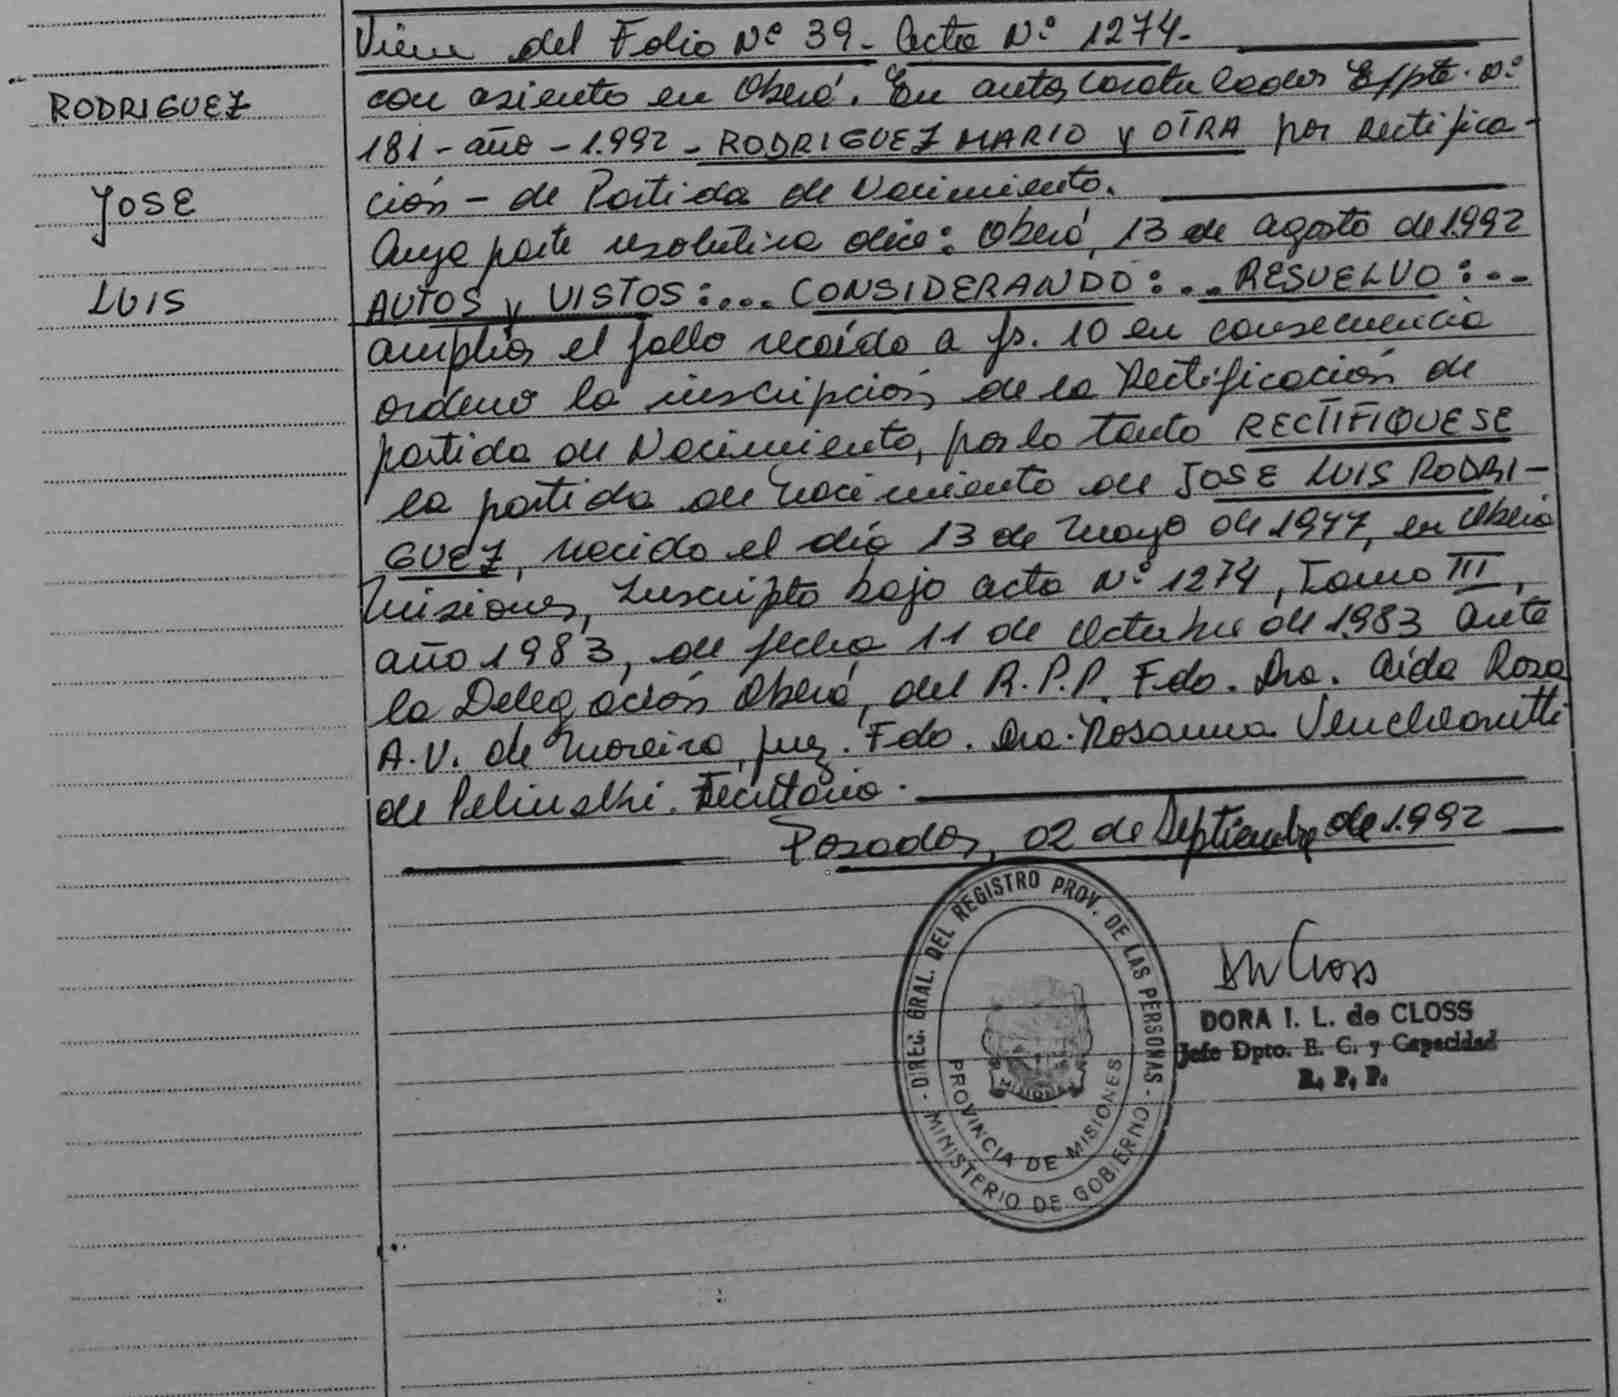 Viene del Folio Nº 39- Acta Nº 1274-
RODRIGUEZ
JOSE
LUIS
con asiento en Oberá. En autos caratulados Expte. nº
181-año-1.992-RODRIGUEZ MARIO y OTRA por Rectifica-
ción- de Partida de Nacimiento.
Cuya parte resolutiva dice: Oberá, 13 de agosto de 1992
AUTOS y VISTOS:... CONSIDERANDO:... RESUELVO:...
ampliar el fallo recaído a fs. 10 en consecuencia
ordeno la inscripción de la Rectificación de
partida de Nacimiento, por lo tanto RECTIFIQUESE
la partida de nacimiento de JOSE LUIS RODRI-
GUEZ, nacido el día 13 de mayo de 1977, en Oberá
Misiones, Inscripto bajo acta Nº 1274, Tomo III,
año 1983, de fecha 11 de Octubre de 1983 ante
la Delegación Oberá, del R.P.P. Fdo. Dra. Aída Rosa
A.V. de Moreira, Juez. Fdo. Dra. Rosanna
de Pelinski. Secretaria.
Posadas, 02 de Septiembre de 1.992
DIREC. GRAL. DEL REGISTRO PROV. DE LAS PERSONAS
MINISTERIO DE GOBIERNO
PROVINCIA DE MISIONES
MISIONES
DORA I. L. de CLOSS
Jefe Dpto. E. C. y Capacidad
R. P. P.